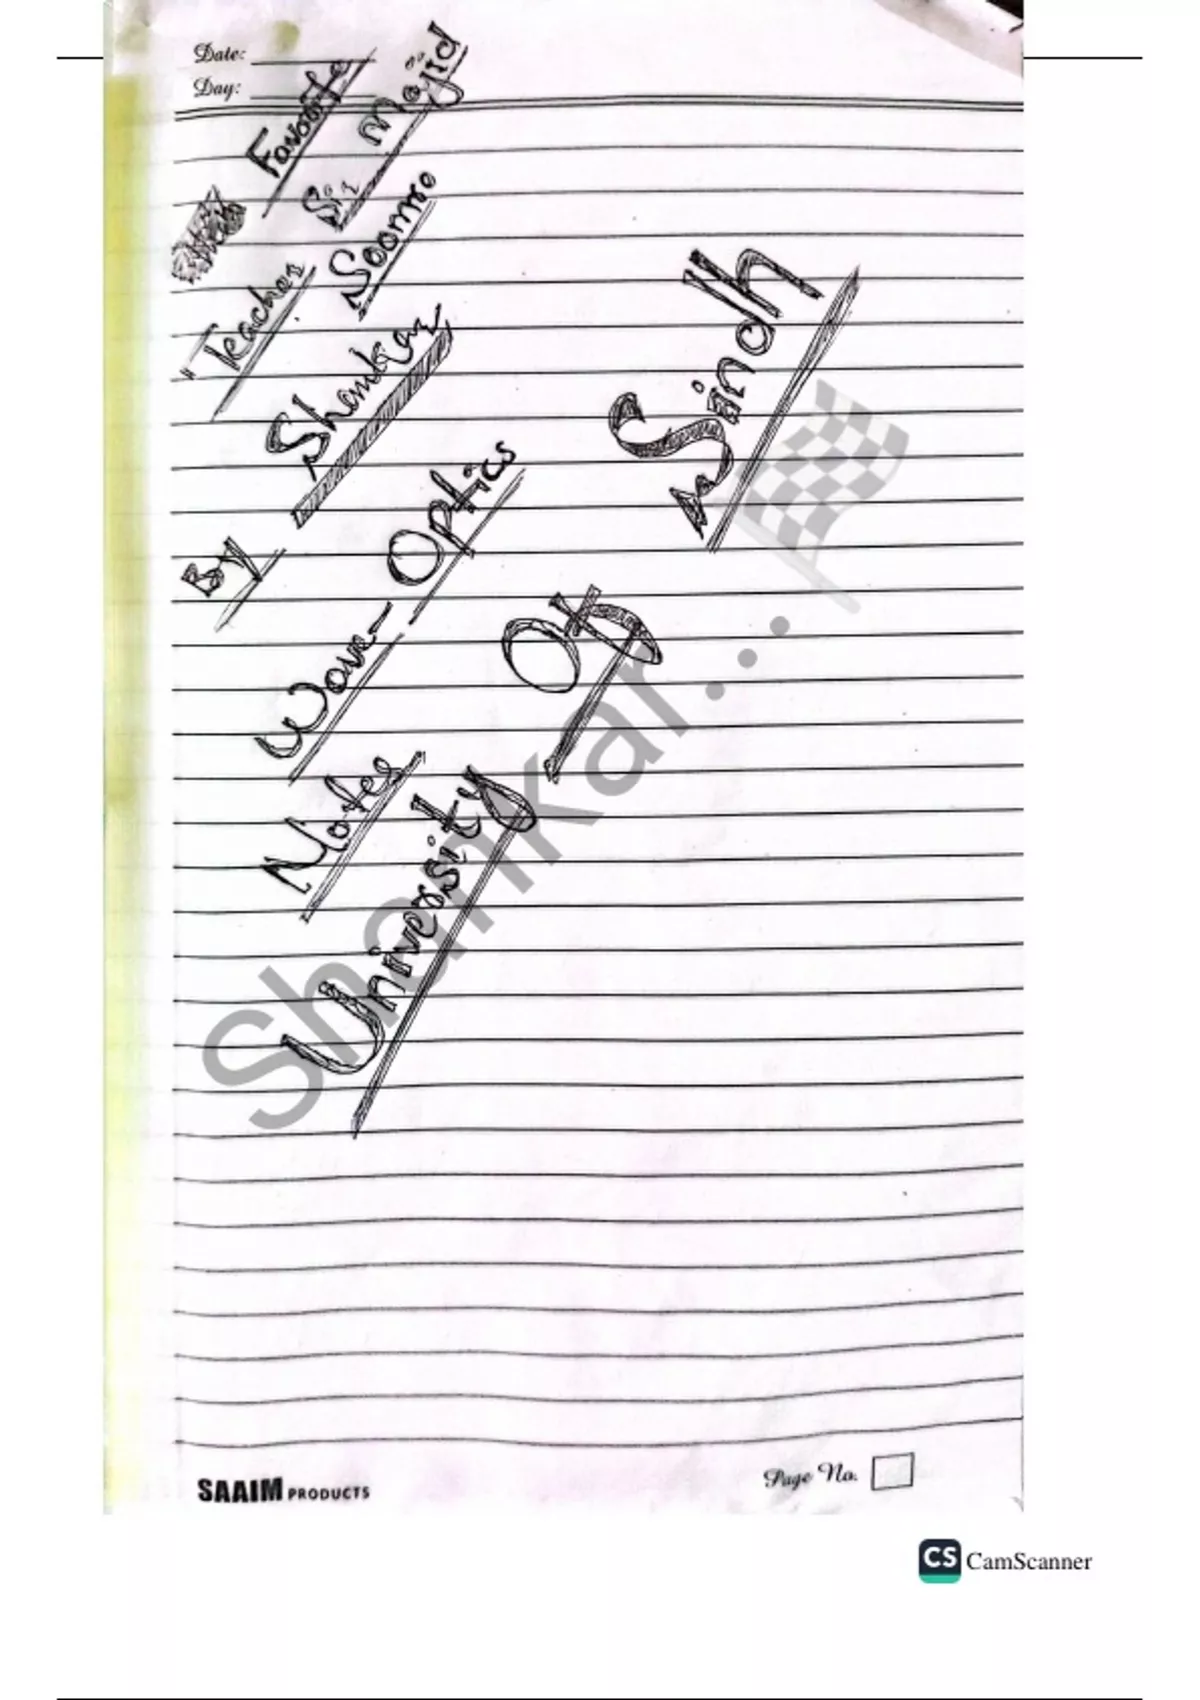 Date:
Day:
Favourite
Teacher
Sir Majid
Soomro
By Shankar
Notes Wave-Optics
University Of Sindh
Shankar...
SAAIM PRODUCTS
Page No.
CS CamScanner